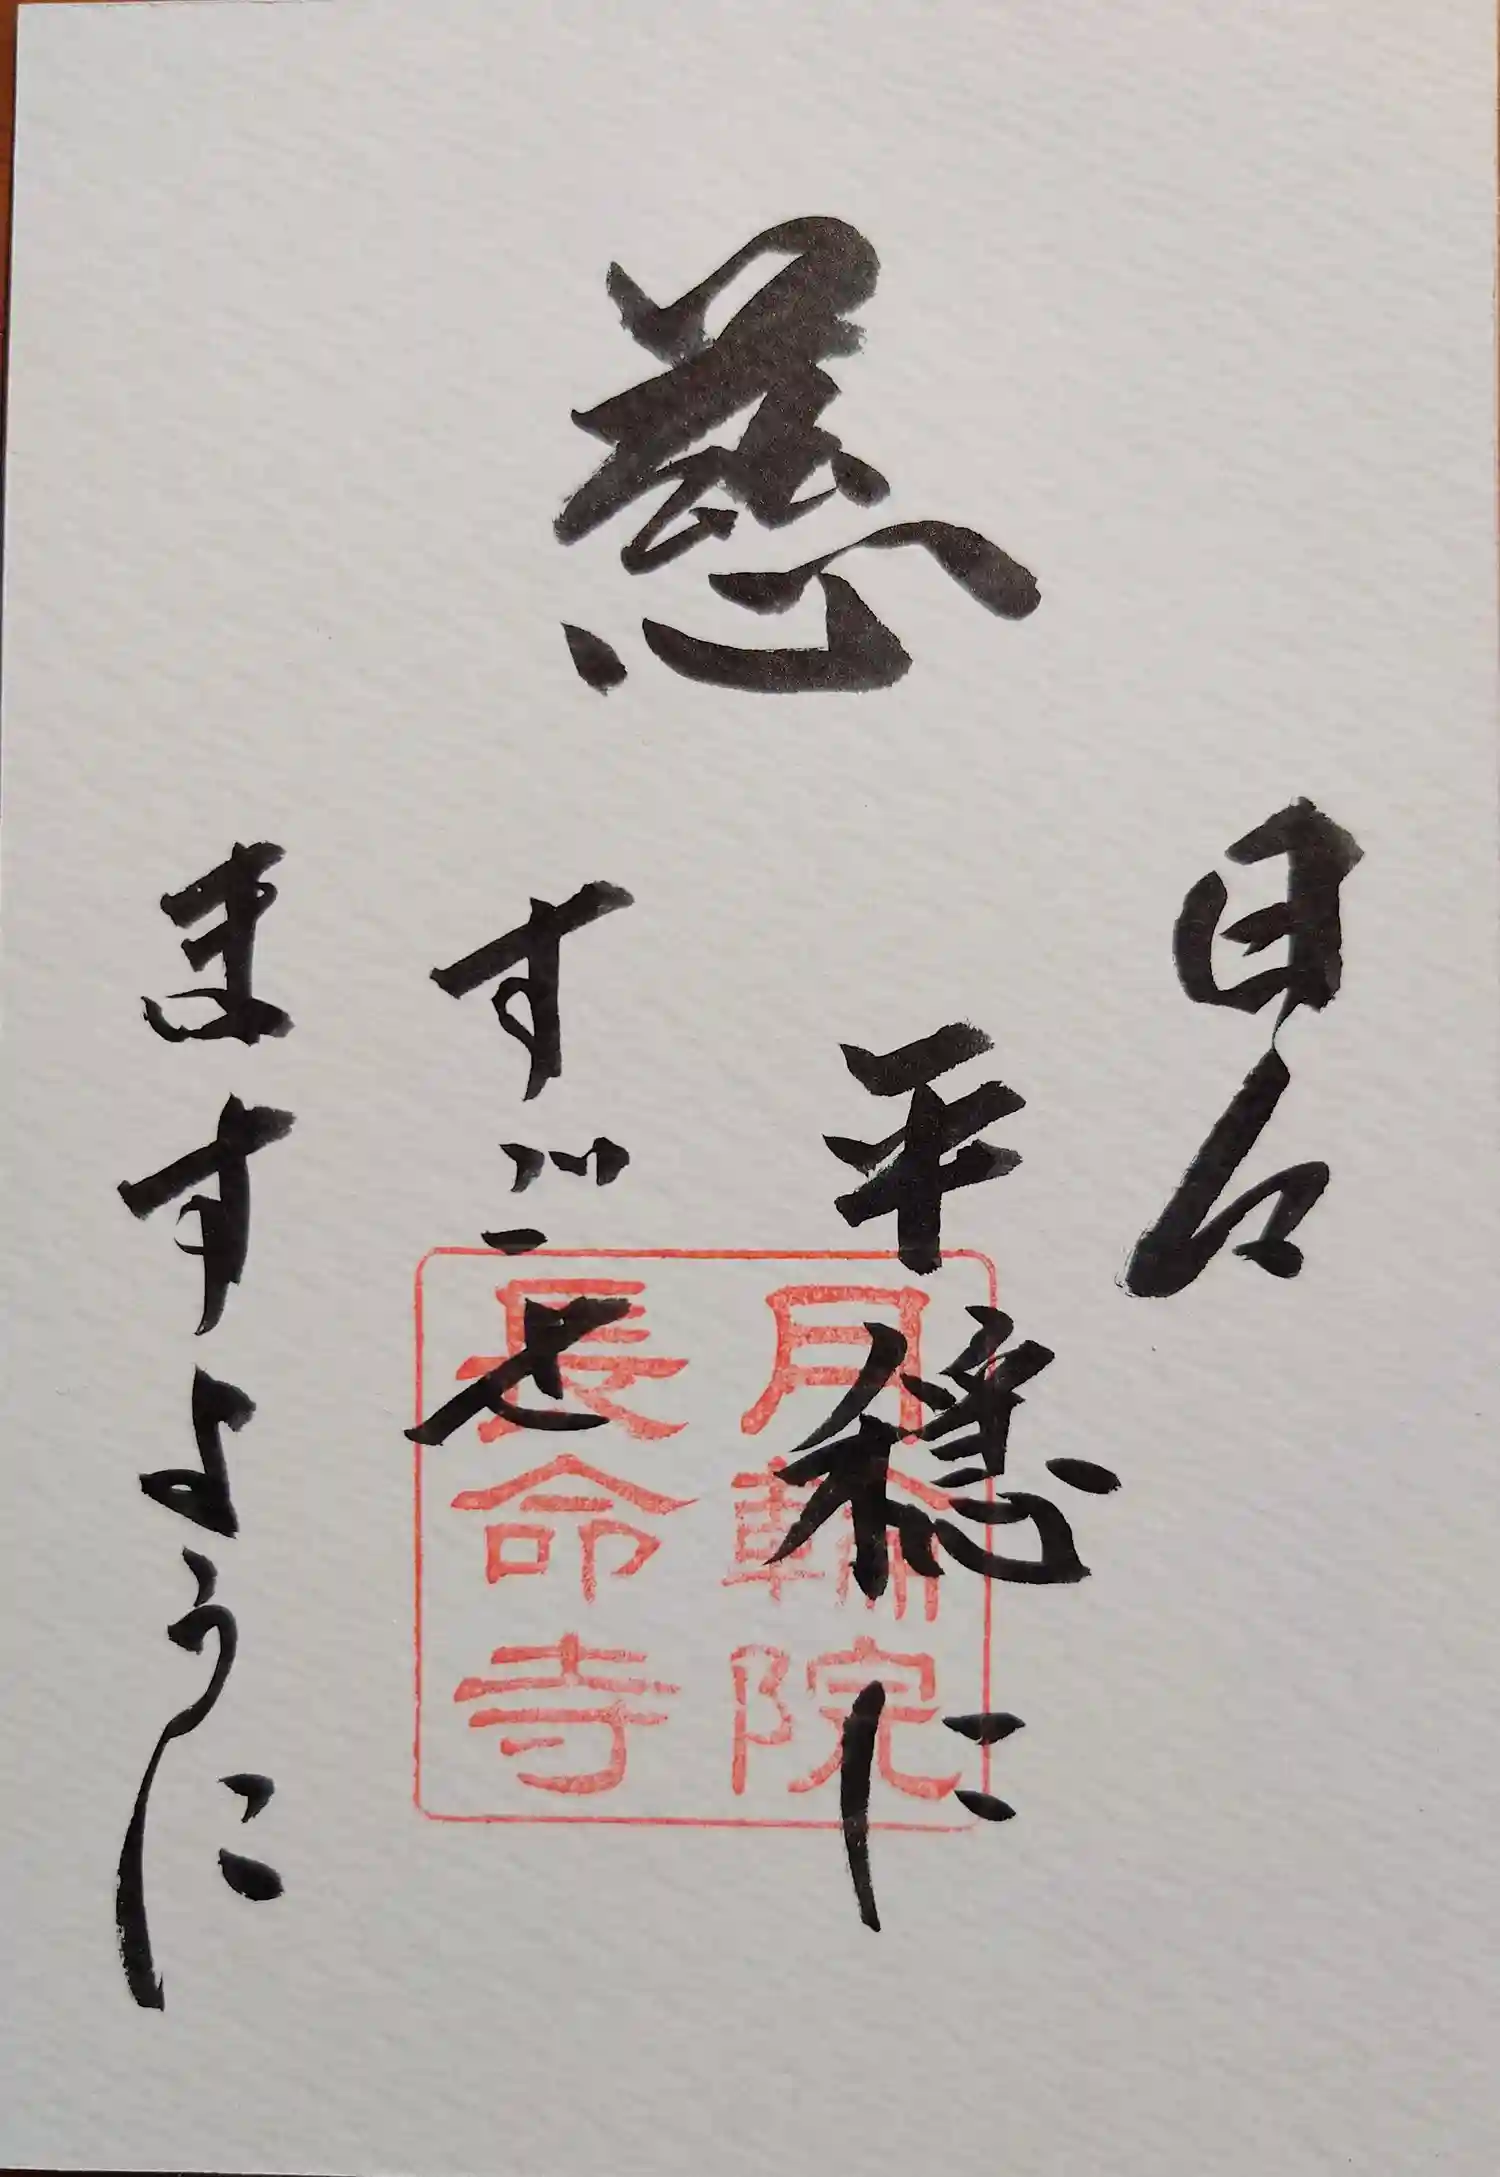 慈
日々
平穏に
すごせ
ますように
月輪院
長命寺